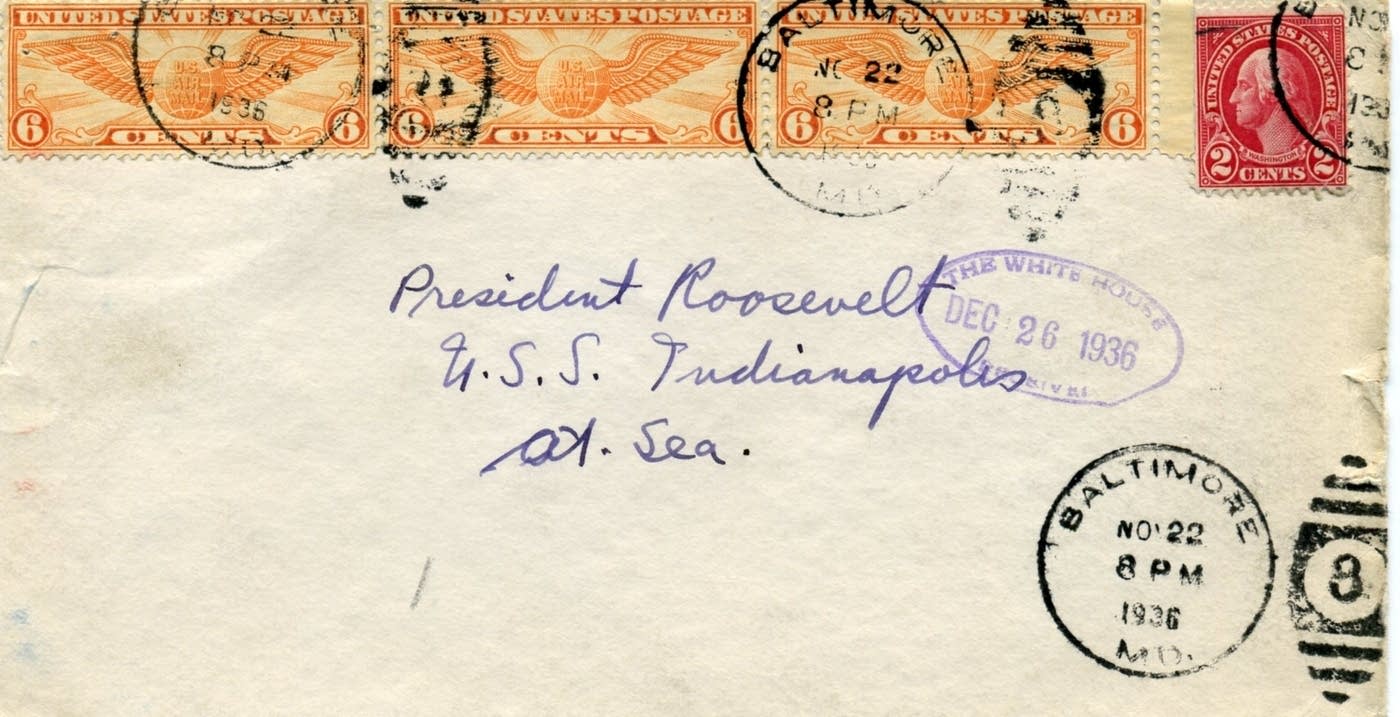 UNITED STATES POSTAGE
U.S.
AIR
MAIL
6 CENTS 6
UNITED STATES POSTAGE
U.S.
AIR
MAIL
6 CENTS
6
UNITED STATES POSTAGE
6 CENTS 6
UNITED STATES POSTAGE
WASHINGTON
2 CENTS 2
8 PM
1936
MD.
BALTIMORE
NO 22
8 PM
MD.
NO
8
President Roosevelt
U.S.S. Indianapolis
At. Sea.
THE WHITE HOUSE
DEC 26 1936
RECEIVED
BALTIMORE
NO 22
8 PM
1936
MD.
3